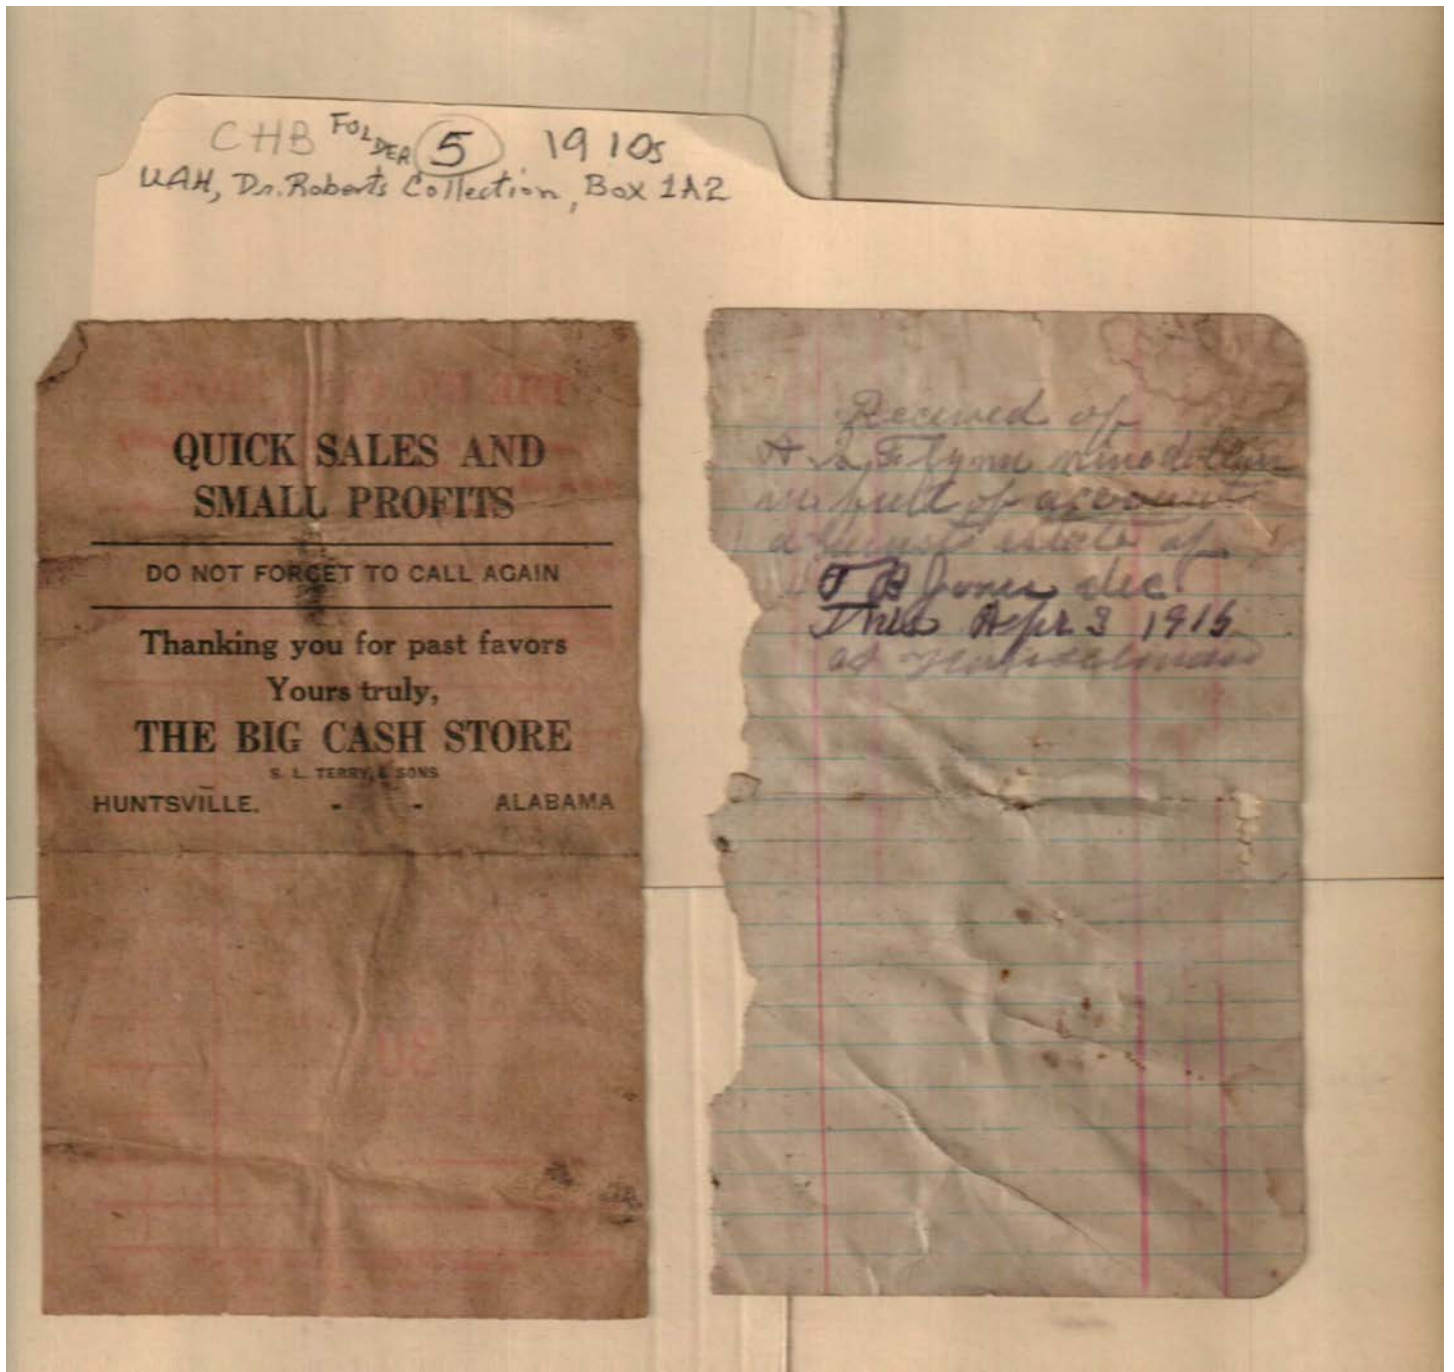 CHB FOLDER 5 1910s
UAH, Dr. Roberts Collection, Box 1A2
QUICK SALES AND
SMALL PROFITS
DO NOT FORGET TO CALL AGAIN
Thanking you for past favors
Yours truly,
THE BIG CASH STORE
S. L. TERRY, & SONS
HUNTSVILLE. - - ALABAMA
Received of
Flynn nine dollars
in full of account
against estate of
T B Jones dec.
This Apr 3 1915